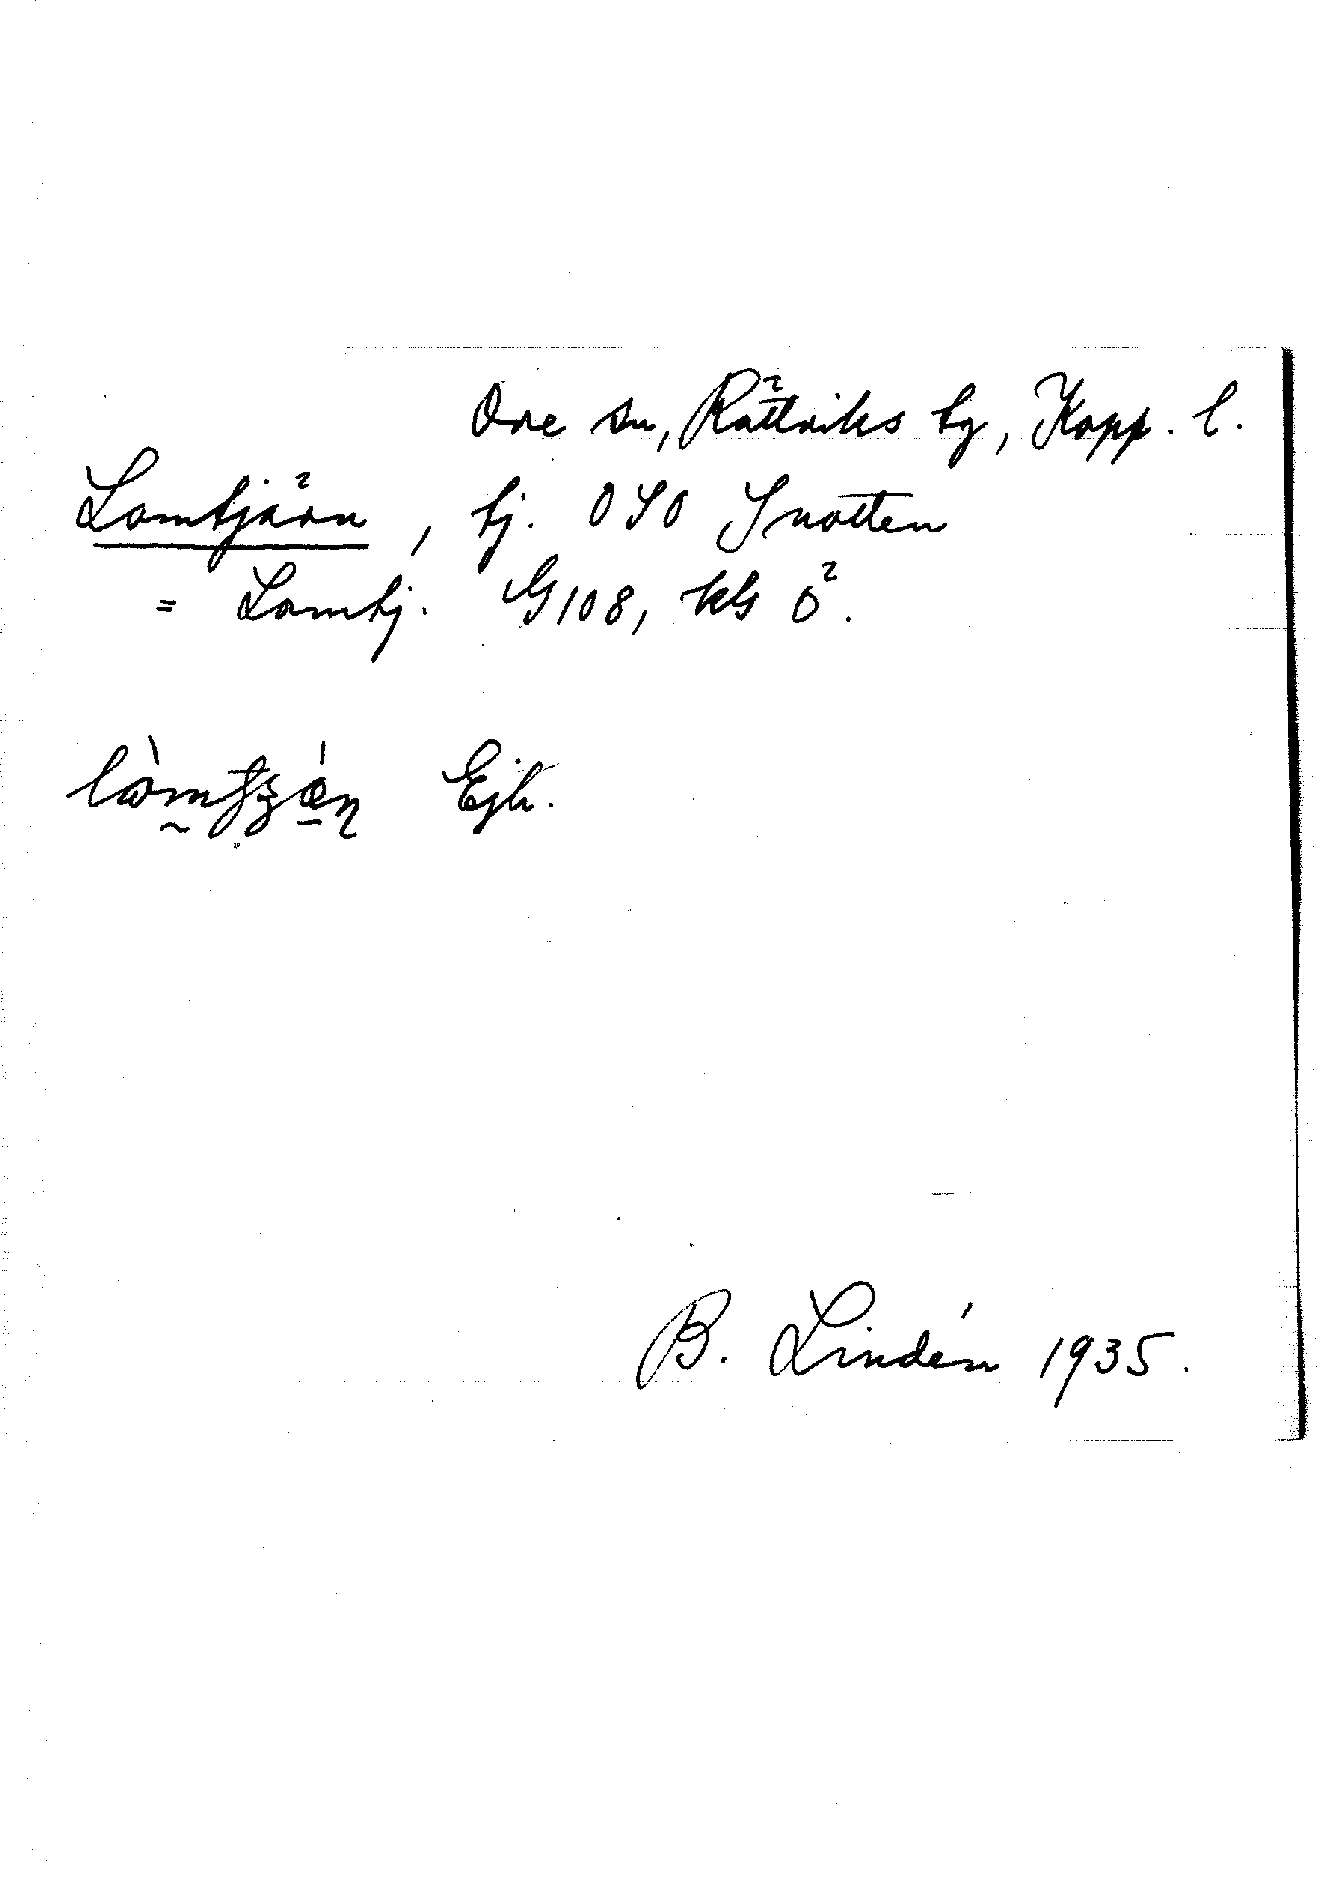 Ore sn, Rättviks tg, Kopp. l.
Lomtjärn, tj. OSO Snotten
= Lomtj. G108, kG Ö.
Ejh.
B. Lindén 1935.